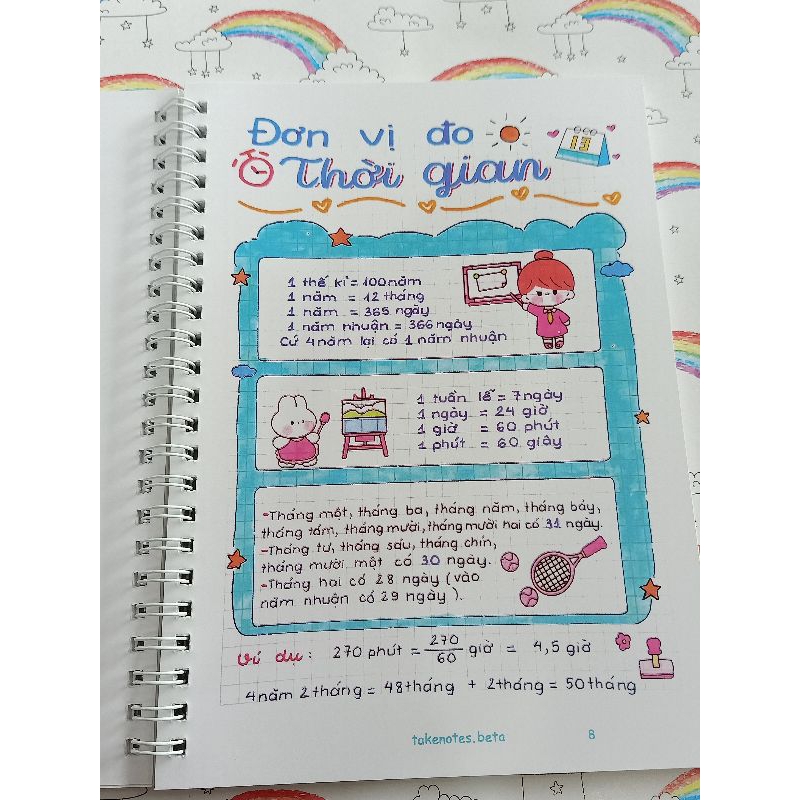 Đơn vị đo
Thời gian
13
1 thế kỉ = 100 năm
1 năm = 12 tháng
1 năm = 365 ngày
1 năm nhuận = 366 ngày
Cứ 4 năm lại có 1 năm nhuận
1 tuần lễ = 7 ngày
1 ngày = 24 giờ
1 giờ = 60 phút
1 phút = 60 giây
-Tháng một, tháng ba, tháng năm, tháng bảy,
tháng tám, tháng mười, tháng mười hai có 31 ngày.
-Tháng tư, tháng sáu, tháng chín,
tháng mười một có 30 ngày.
-Tháng hai có 28 ngày (vào
năm nhuận có 29 ngày).
Ví dụ: 270 phút = 270/60 giờ = 4,5 giờ
4 năm 2 tháng = 48 tháng + 2 tháng = 50 tháng
takenotes.beta 8